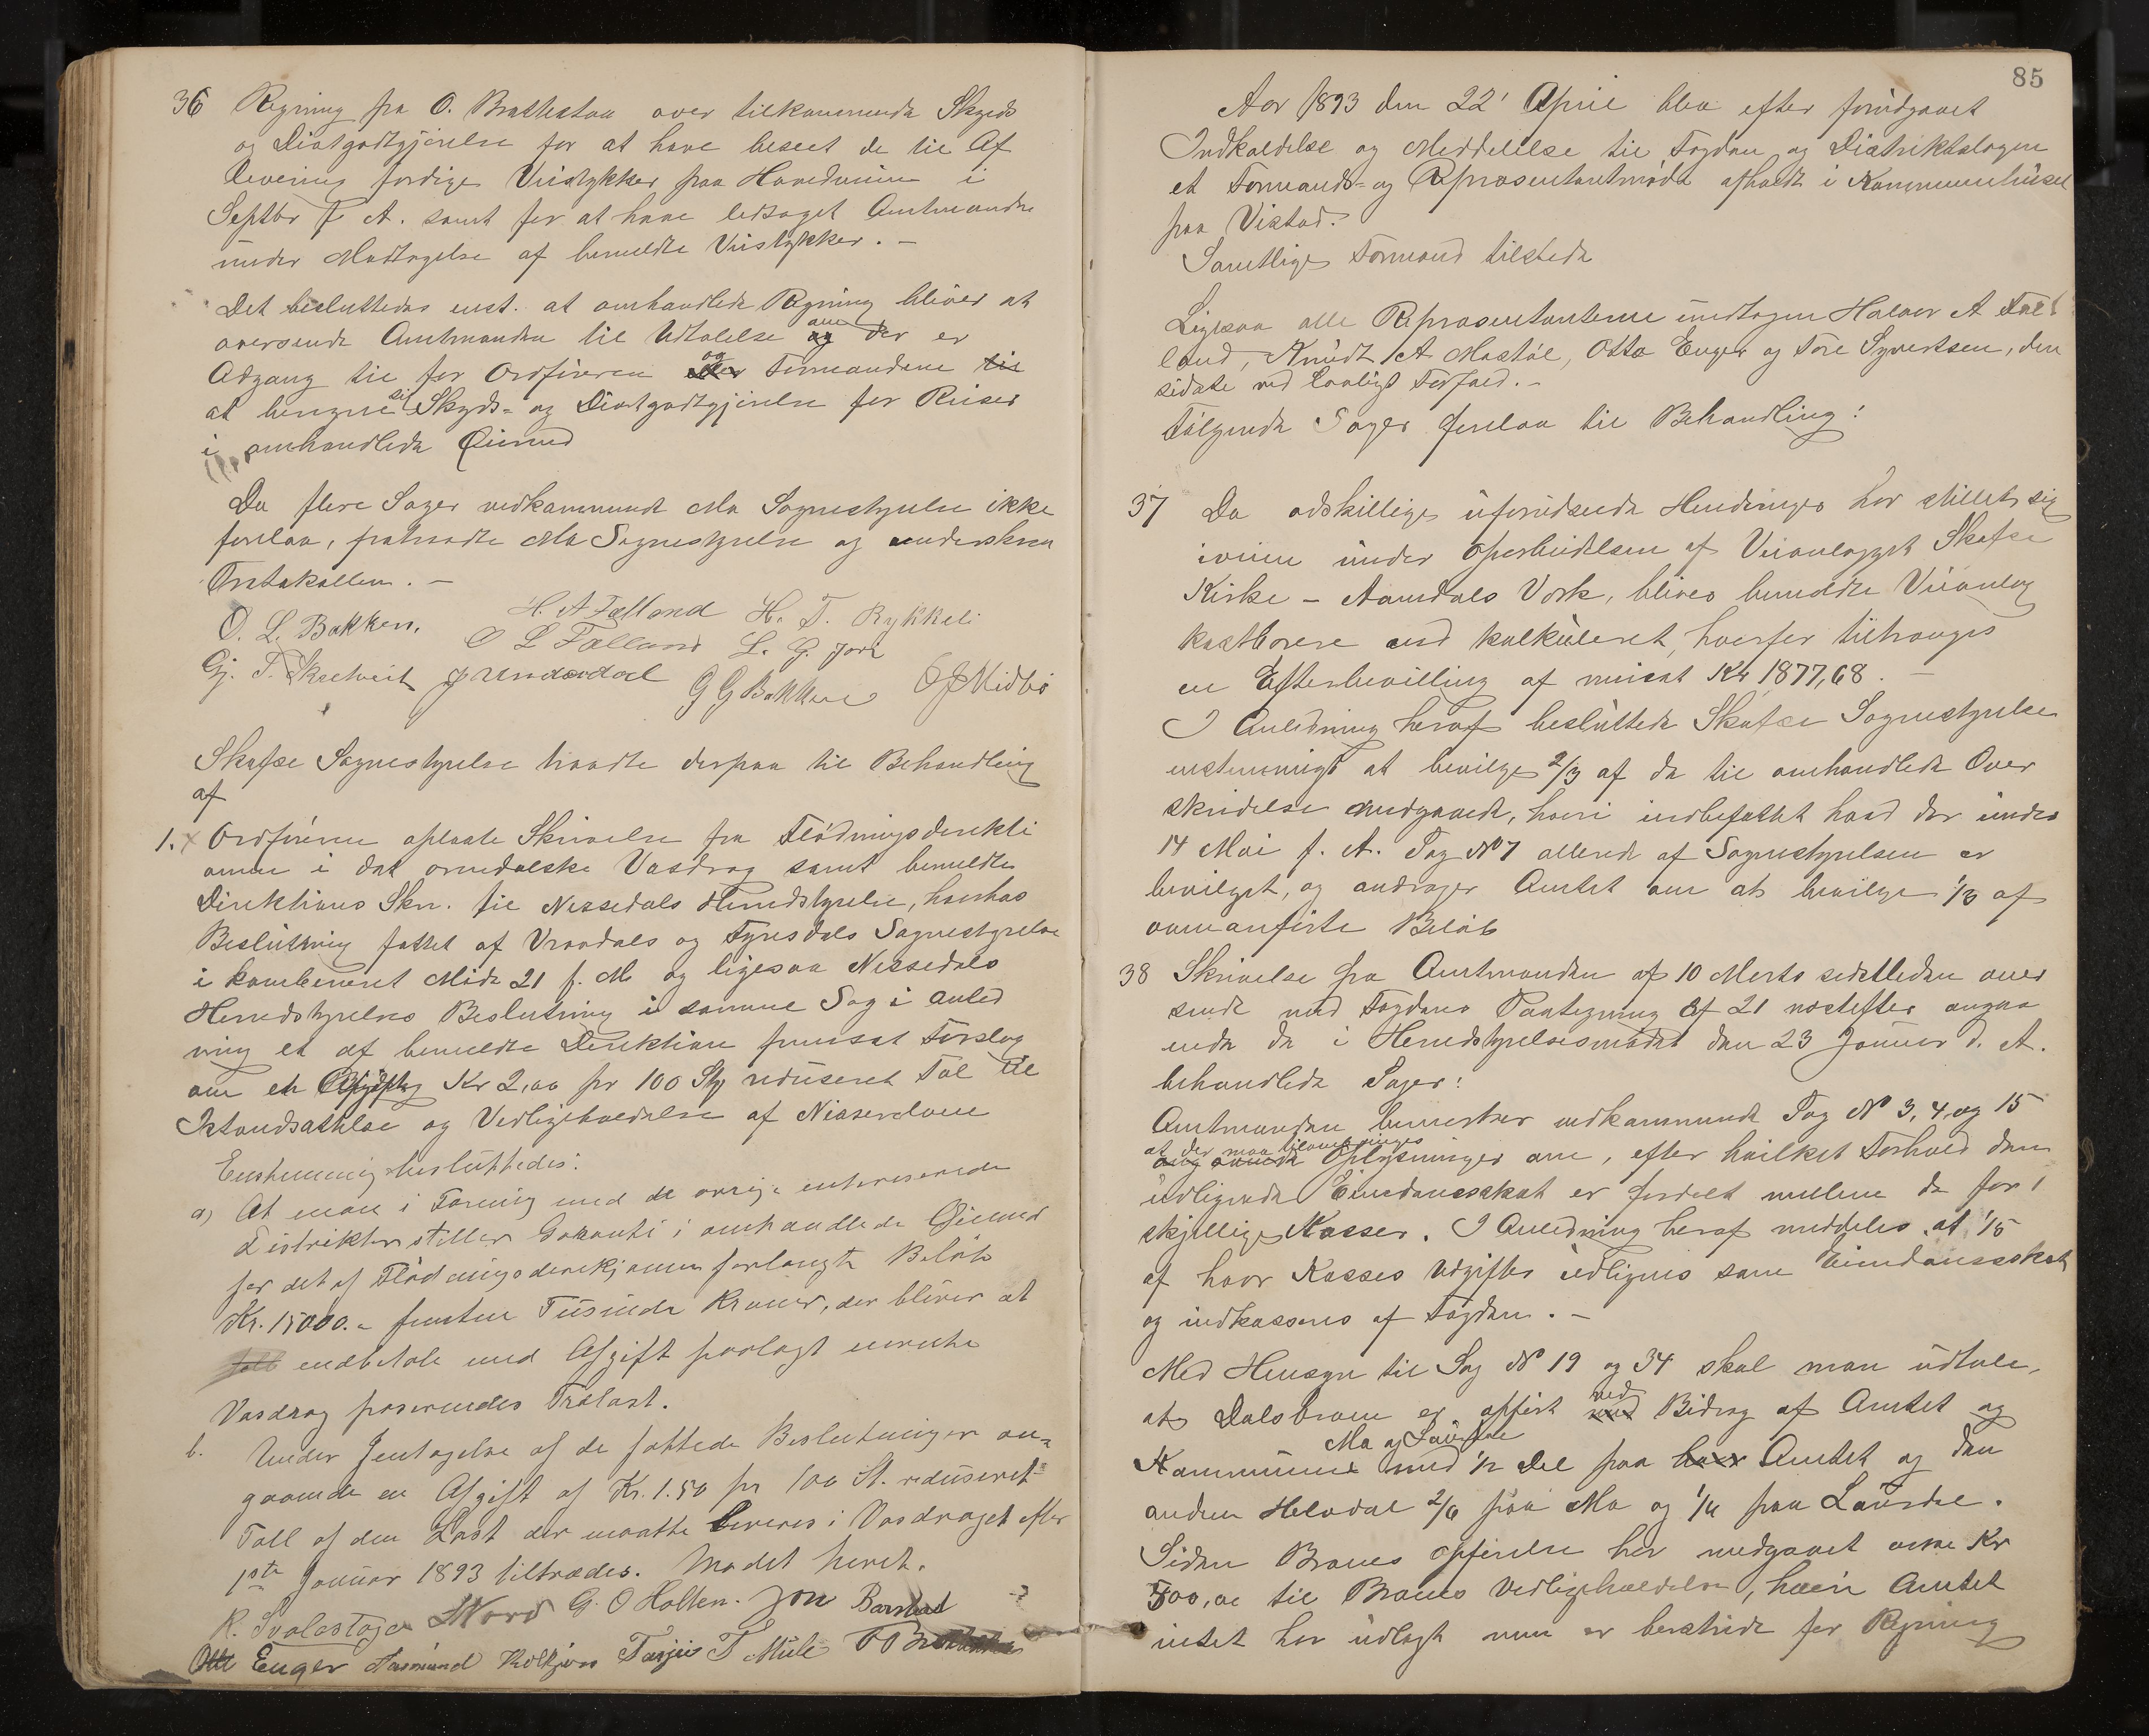 36 Regning fra O. Brattestaa over tilkommende Skyds
og Diætgodtgjørelse for at have beseet de til Af
levering færdige Veistykker paa Hovedveien i
Septbr f. A. samt for at have ledsaget Amtmanden
under Modtagelse af bemeldte Veistykker. –
Det besluttedes enst. at omhandlede Regning bliver at
oversende Amtmanden til Udtalelse om der er
Adgang til for Ordføreren og Formændene
at beregne sig Skyds- og Diætgodtgjørelse for Reiser
i omhandlede Øiemed
Da flere Sager vedkommende Mo Sognestyrelse ikke
forelaa, fratraadte Mo Sognestyrelse og underskrev
Protokollen. –
O. L. Bakken. H. A Falland H. T. Rykkeli
O L Falland L. G. Jore
Gj. T. Skretveit J Underdal G G Bakken O J Midbø
Skafse Sognestyrelse traadte derpaa til Behandling
af
1. x Ordføreren oplæste Skrivelse fra Flødningsdirekti
onen i det arendalske Vasdrag samt bemeldte
Direktions Skr. til Nissedals Herredstyrelse, hvorhos
Beslutning fattet af Vraadals og Fyresdals Sognestyrelse
i kombineret Møde 21 f. M og ligesaa Nissedals
Herredstyrelses Beslutning i samme Sag i Anled
ning et af bemeldte Direktion fremsat Forslag
om en Afgift Kr 2,00 pr 100 Stk reduseret Tal til
Istandsættelse og Vedligeholdelse af Nisserdam
Enstemmig besluttedes:
a) At man i Forening med de øvrige interesserede
Distrikter stiller Garanti i omhandlede Øiemed
for det af Flødningsdirekjonen forlangte Beløb
Kr. 15000.– femten Tusinde Kroner, der bliver at
indbetale med Afgift paalagt nævnte
Vasdrag paserendes Trælast.
b. Under Jentagelse af de fattede Beslutninger an-
gaaende en Afgift af Kr. 1.50 pr 100 St. reduseret
Tall af den Last der maatte leveres i Vasdraget efter
1ste Januar 1893 tiltrædes. Mødet hævet.
K. Svalastoga Nord G. O Holten. Jon Barstad
Otto Enger Aasmund Kolkjøn Tarjei T Mule
85
Aar 1893 den 22' April blev efter forudgaaet
Indkaldelse og Meddelelse til Fogden og Distriktslægen
et Formands- og Repræsentantmøde afholdt i Kommunehuset
paa Vistad.
Samtlige Formænd tilstede
Ligesaa alle Repræsentanterne undtagen Halvor A Fal
land, Knudt A Mostøl, Otto Enger og Tore Syvertsen, den
sidste ved lovligt Forfald. –
Følgende Sager forelaa til Behandling:
37 Da adskillige uforudseede Hendinger har stillet sig
iveien under Oparbeidelsen af Veianlægget Skafse
Kirke – Aamdals Verk, blives bemeldte Veianlæg
kostbarere end kalkuleret, hvorfor tiltrænges
en Efterbevilling af medest Kr 1877,68. –
I Anledning heraf besluttede Skafse Sognestyrelse
enstemmigt at bevilge 2/3 af de til omhandlede Over
skridelse medgaaede, hvori indbefattet hvad der under
14 Mai f. A. Sag No 7 allerede af Sognestyrelsen er
bevilget, og andrager Amtet om at bevilge 1/3 af
ovenanførte Beløb
38 Skrivelse fra Amtmanden af 10 Marts sidstleden over
sendt med Fogdens Paategning af 21 næstefter angaa
ende de i Herredstyrelsesmødet den 23 Januar d. A.
behandlede Sager:
Amtmanden bemerker vedkommende Sag No 3, 4 og 15
at der maa tilveiebringes Oplysninger om, efter hvilket Forhold den
udlignede Eiendomsskat er fordelt mellem de for
skjellige Kasser. I Anledning heraf meddeles, at 1/5
af hver Kasses Udgifter udlignes som Eiendomsskat
og indkasseres af Fogden. –
Med Hensyn til Sag No 19 og 34 skal man udtale,
at Dalsbroen er opført ved Bidrag af Amtet og
Kommunerne Mo og Laurdal med 1/2 Del paa Amtet og den
anden Halvdel 2/6 paa Mo og 1/6 paa Laurdal.
Siden Broens Opførelse har medgaaet over Kr
500,00 til Broens Vedligeholdelse, hvori Amtet
intet har udlagt men er bestridt for Regning